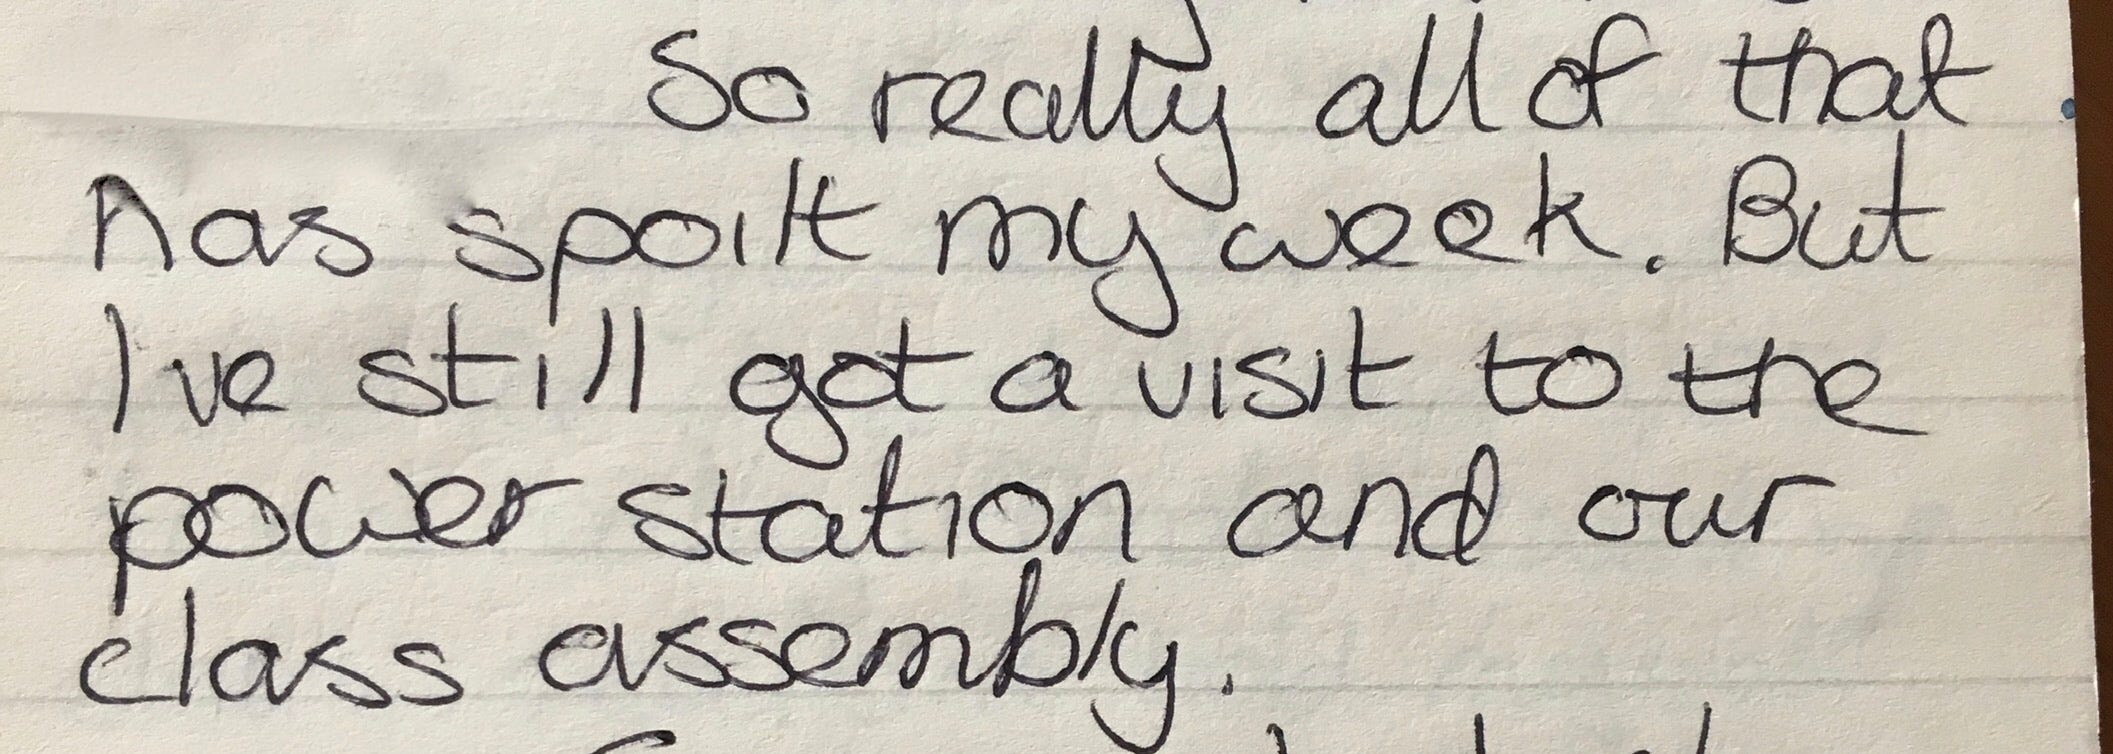 So really all of that
has spoilt my week. But
I've still got a visit to the
power station and our
class assembly.